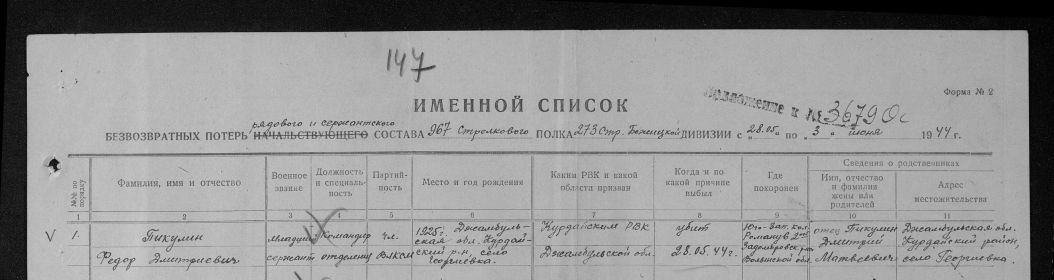 147
Форма № 2
ИМЕННОЙ СПИСОК
Приложение к № 36790с
рядового и сержантского
БЕЗВОЗВРАТНЫХ ПОТЕРЬ НАЧАЛЬСТВУЮЩЕГО СОСТАВА 967 Стрелкового ПОЛКА 273 Стр. Бежицкой ДИВИЗИИ с "28.05" по "3" июня 1944 г.
№№ по порядку
Фамилия, имя и отчество
Военное звание
Должность и специальность
Партийность
Место и год рождения
Каким РВК и какой области призван
Когда и по какой причине выбыл
Где похоронен
Сведения о родственниках
Имя, отчество и фамилия жены или родителей
Адрес местожительства
1 2 3 4 5 6 7 8 9 10 11
V 1. Пикулин Федор Дмитриевич
младший сержант
Командир отделения
чл. ВЛКСМ
1925г. Джамбульская обл. Курдайский р-н, село Георгиевка
Курдайским РВК Джамбульской обл.
убит 28.05.44г.
Юго-Зап. кол.
Волынской обл.
отец Пикулин Дмитрий Матвеевич
Джамбульская обл. Курдайский район, село Георгиевка.